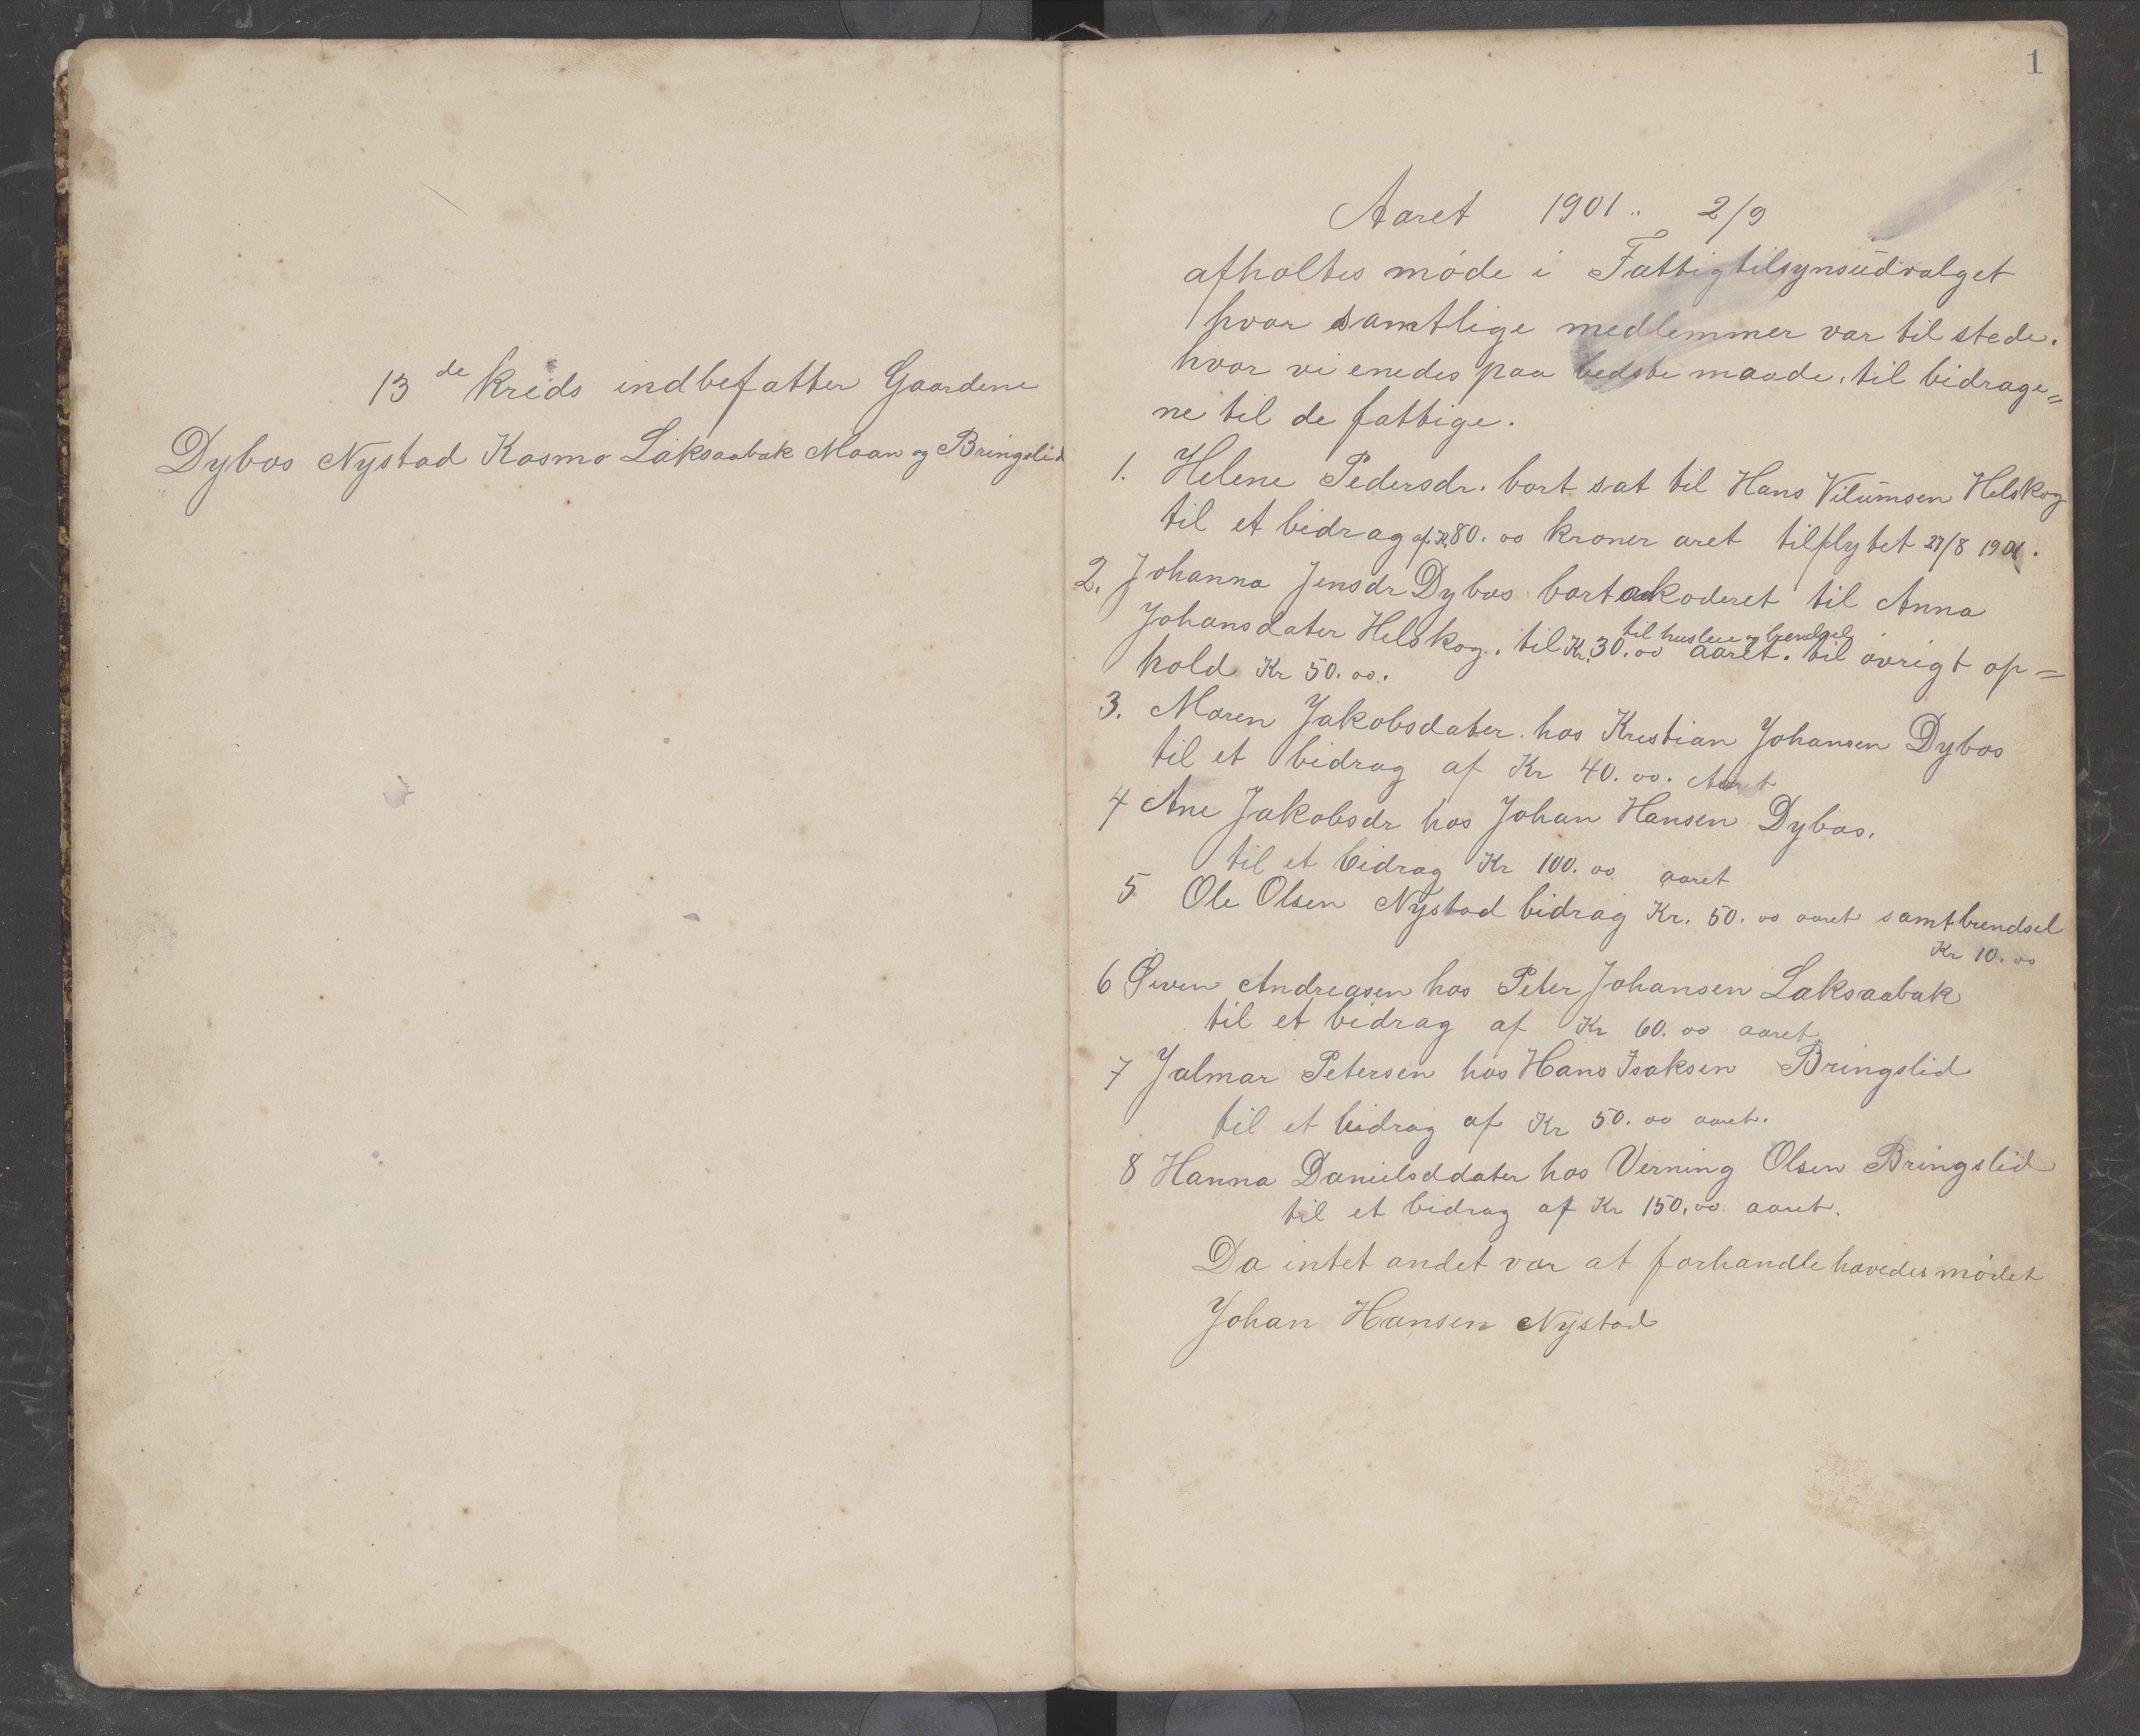 13de Kreds indbefatter Gaardene
Dybos Nystad Kosmo Laksaabak Moan og Bringslid
1
Aaret 1901.. 2/9
afholtes møde i Fattigtilsynsudvalget
hvor samtlige medlemmer var til stede.
hvor vi enedes paa bedste maade. til bidrage=
ne til de fattige.
1. Helene Pedersdr. bort sat til Hans Vilumsen Helskog
til et bidrag af Kr 80. oo kroner aret tilflytet 27/8 1901.
2. Johanna Jensdr Dybos bortakoderet til Anna
til husleie og brendsel
Johansdater Helskog. til Kr. 30. oo aaret. til øvrigt op=
hold Kr 50. oo.
3. Maren Jakobsdater. hos Kristian Johansen Dybos
til et bidrag af Kr 40. oo. Aaret
4 Ane Jakobsdr hos Johan Hansen Dybos.
til et bidrag Kr 100. oo aaret
5 Ole Olsen Nystad bidrag Kr. 50. oo aaret samt brendsel
Kr 10. oo
6 Andreasen hos Peter Johansen Laksaabak
til et bidrag af Kr 60. oo aaret.
7 Jalmar Petersen hos Hans Isaksen Bringslid
til et bidrag af Kr 50. oo aaret.
8 Hanna Danielsddater hos Verning Olsen Bringslid
til et bidrag af Kr 150. oo aaret.
Da intet andet var at forhandle hævedes mødet
Johan Hansen Nystad